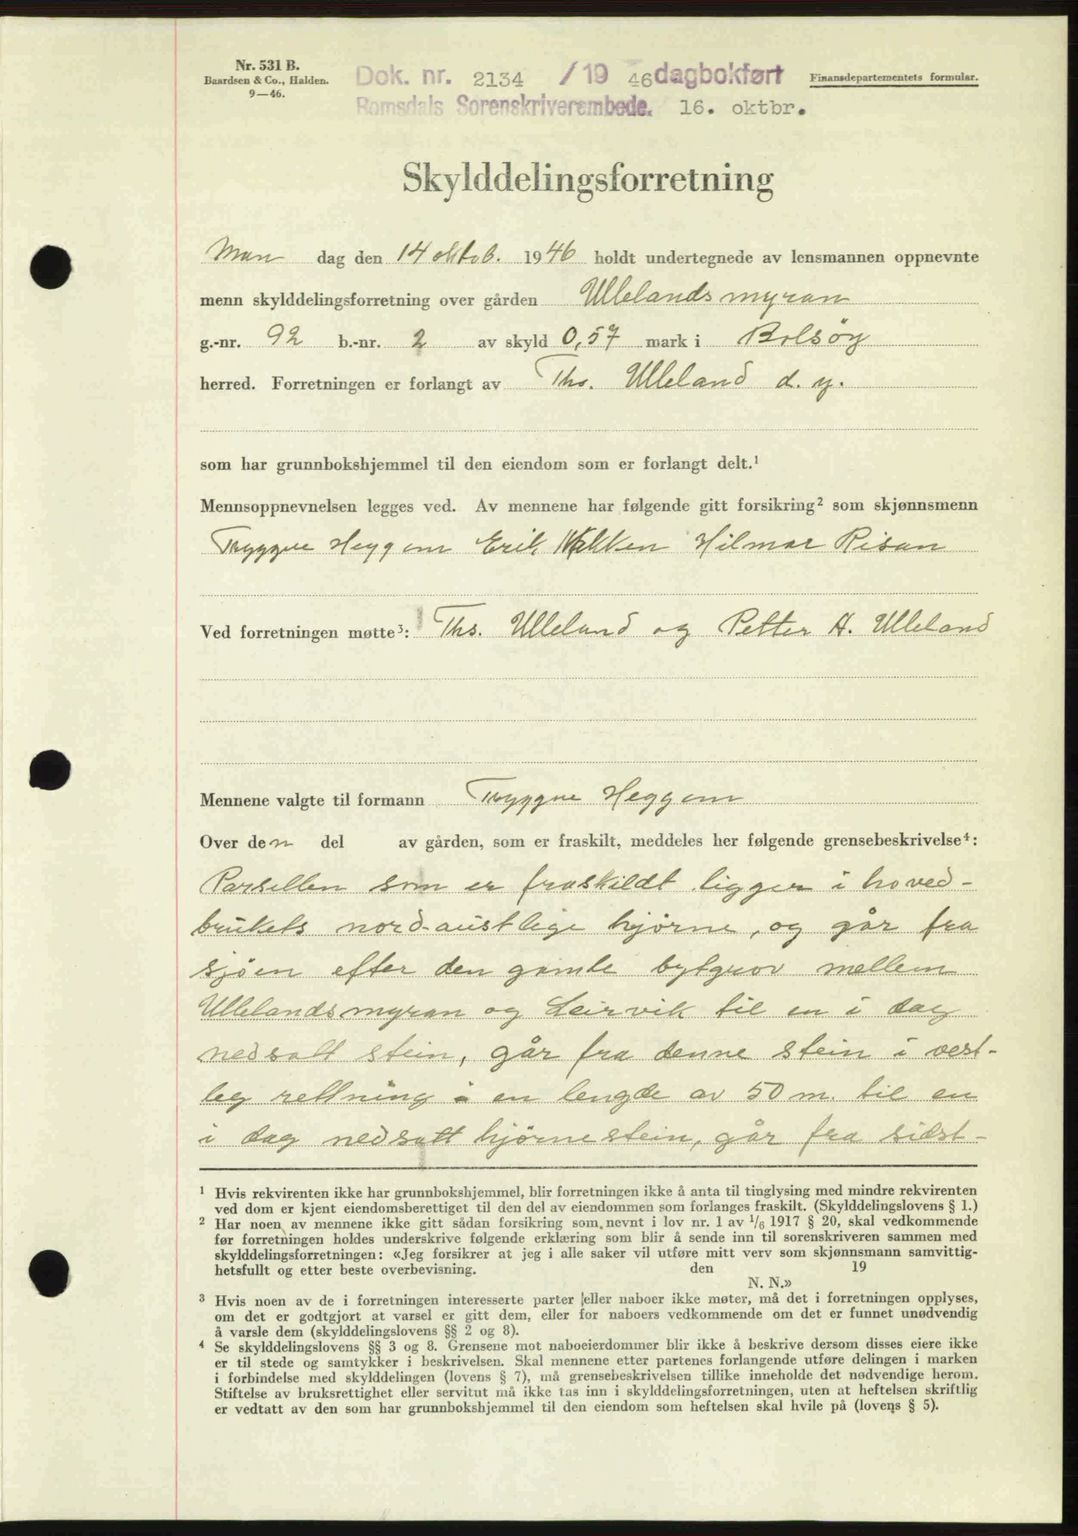 Nr. 531 B.
Baardsen & Co., Halden.
9—46.
Dok. nr. 2134 /19 46 dagbokført
Romsdals Sorenskriverembede. 16. oktbr.
Finansdepartementets formular.
Skylddelingsforretning
Man dag den 14 oktob. 1946 holdt undertegnede av lensmannen oppnevnte
menn skylddelingsforretning over gården Ullelandsmyran
g.-nr. 92 b.-nr. 2 av skyld 0,57 mark i Bolsøy
herred. Forretningen er forlangt av Ths. Ulleland d. y.
som har grunnbokshjemmel til den eiendom som er forlangt delt.¹
Mennsoppnevnelsen legges ved. Av mennene har følgende gitt forsikring² som skjønnsmenn
Tryggve Heggem Erik Hilmar Risan
Ved forretningen møtte³: Ths. Ulleland og Petter H. Ulleland
Mennene valgte til formann Tryggve Heggem
Over den del av gården, som er fraskilt, meddeles her følgende grensebeskrivelse⁴:
Parsellen som er fraskildt ligger i hoved-
brukets nord-austlige hjørne, og går fra
sjøen efter den gamle bytgrov mellem
Ullelandsmyran og Leirvik til en i dag
nedsatt stein, går fra denne stein i vest-
leg rettning i en lengde av 50 m. til en
i dag nedsatt hjørnestein, går fra sidst-
¹ Hvis rekvirenten ikke har grunnbokshjemmel, blir forretningen ikke å anta til tinglysing med mindre rekvirenten
ved dom er kjent eiendomsberettiget til den del av eiendommen som forlanges fraskilt. (Skylddelingslovens § 1.)
² Har noen av mennene ikke gitt sådan forsikring som nevnt i lov nr. 1 av 1/6 1917 § 20, skal vedkommende
før forretningen holdes underskrive følgende erklæring som blir å sende inn til sorenskriveren sammen med
skylddelingsforretningen: «Jeg forsikrer at jeg i alle saker vil utføre mitt verv som skjønnsmann samvittig-
hetsfullt og etter beste overbevisning. den 19
N. N.»
³ Hvis noen av de i forretningen interesserte parter eller naboer ikke møter, må det i forretningen opplyses,
om det er godtgjort at varsel er gitt dem, eller for naboers vedkommende om det er funnet unødvendig
å varsle dem (skylddelingslovens §§ 2 og 8).
⁴ Se skylddelingslovens §§ 3 og 8. Grensene mot naboeierdommer blir ikke å beskrive dersom disses eiere ikke
er til stede og samtykker i beskrivelsen. Skal mennene etter partenes forlangende utføre delingen i marken
i forbindelse med skylddelingen (lovens § 7), må grensebeskrivelsen tillike inneholde det nødvendige herom.
Stiftelse av bruksrettighet eller servitut må ikke tas inn i skylddelingsforretningen, uten at heftelsen skriftlig
er vedtatt av den som har grunnbokshjemmel til den eiendom som heftelsen skal hvile på (lovens § 5).